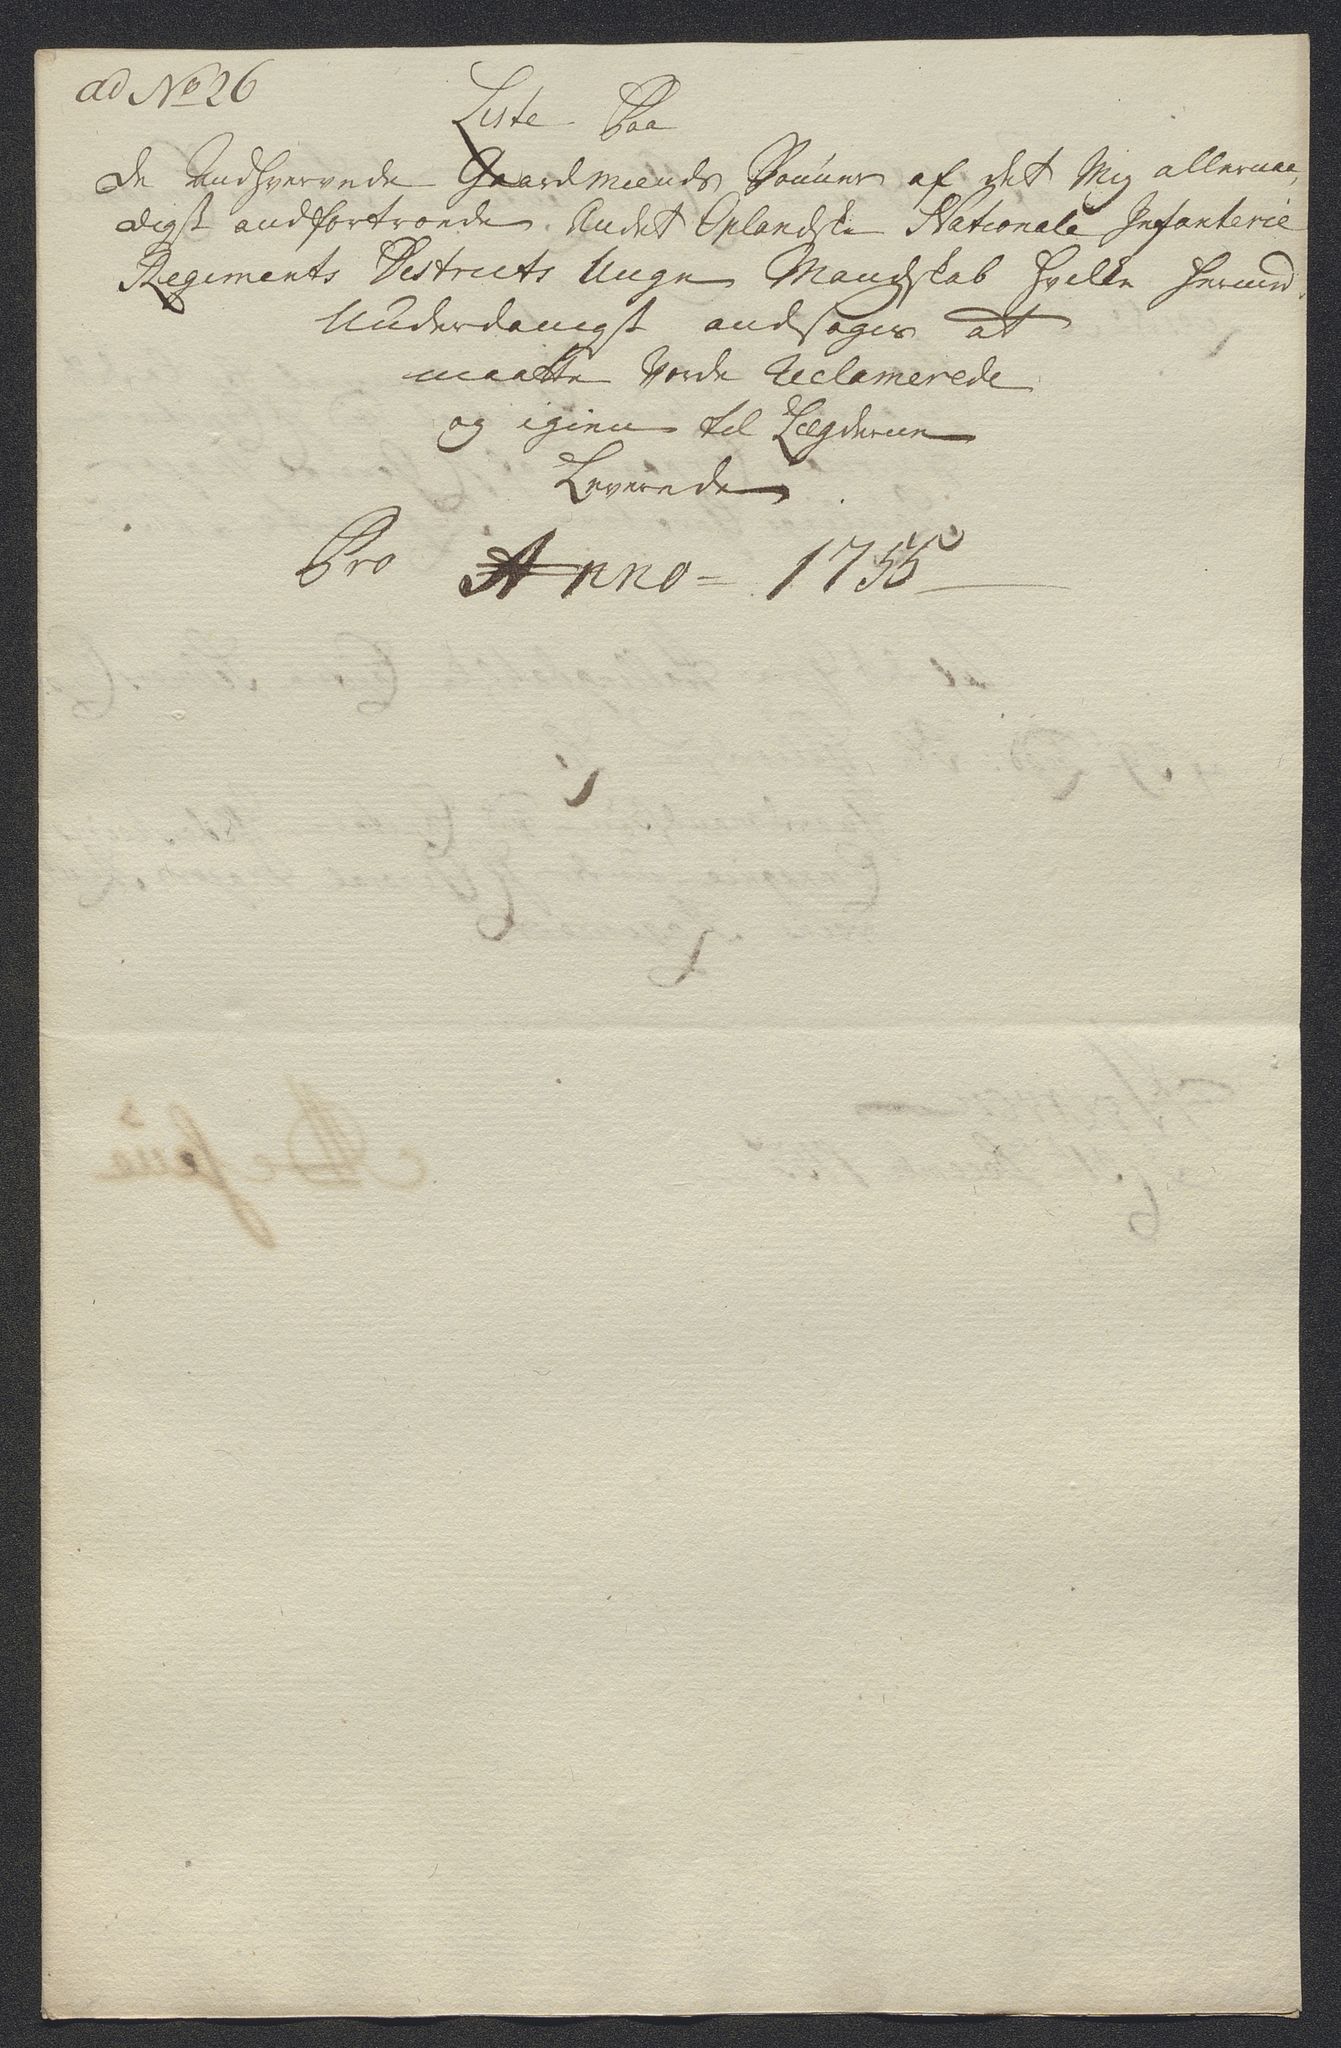 ad No 26
Liste Paa
de Udhvervede Gaardmænds Sønner af det Mig allernaa,
digst andfortroede Andet Oplandske Nationale Infanterie
Regiments Districts Unge Mandskab hvilke herved
Underdanigst andsøges at
maatte vorde Reclamerede
og igien til Lægderne
Leverede
Pro Anno = 1755